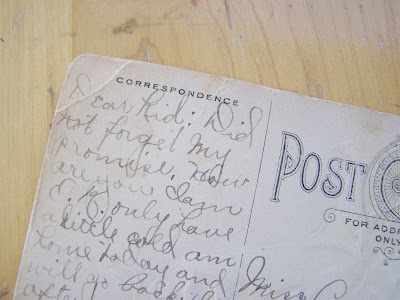 CORRESPONDENCE
Dear Kid: Did
not forget My
promise. How
are you I am
O. K. only have
a little cold am
home today and
will go back
after
POST
FOR ADDRE
ONLY
Miss